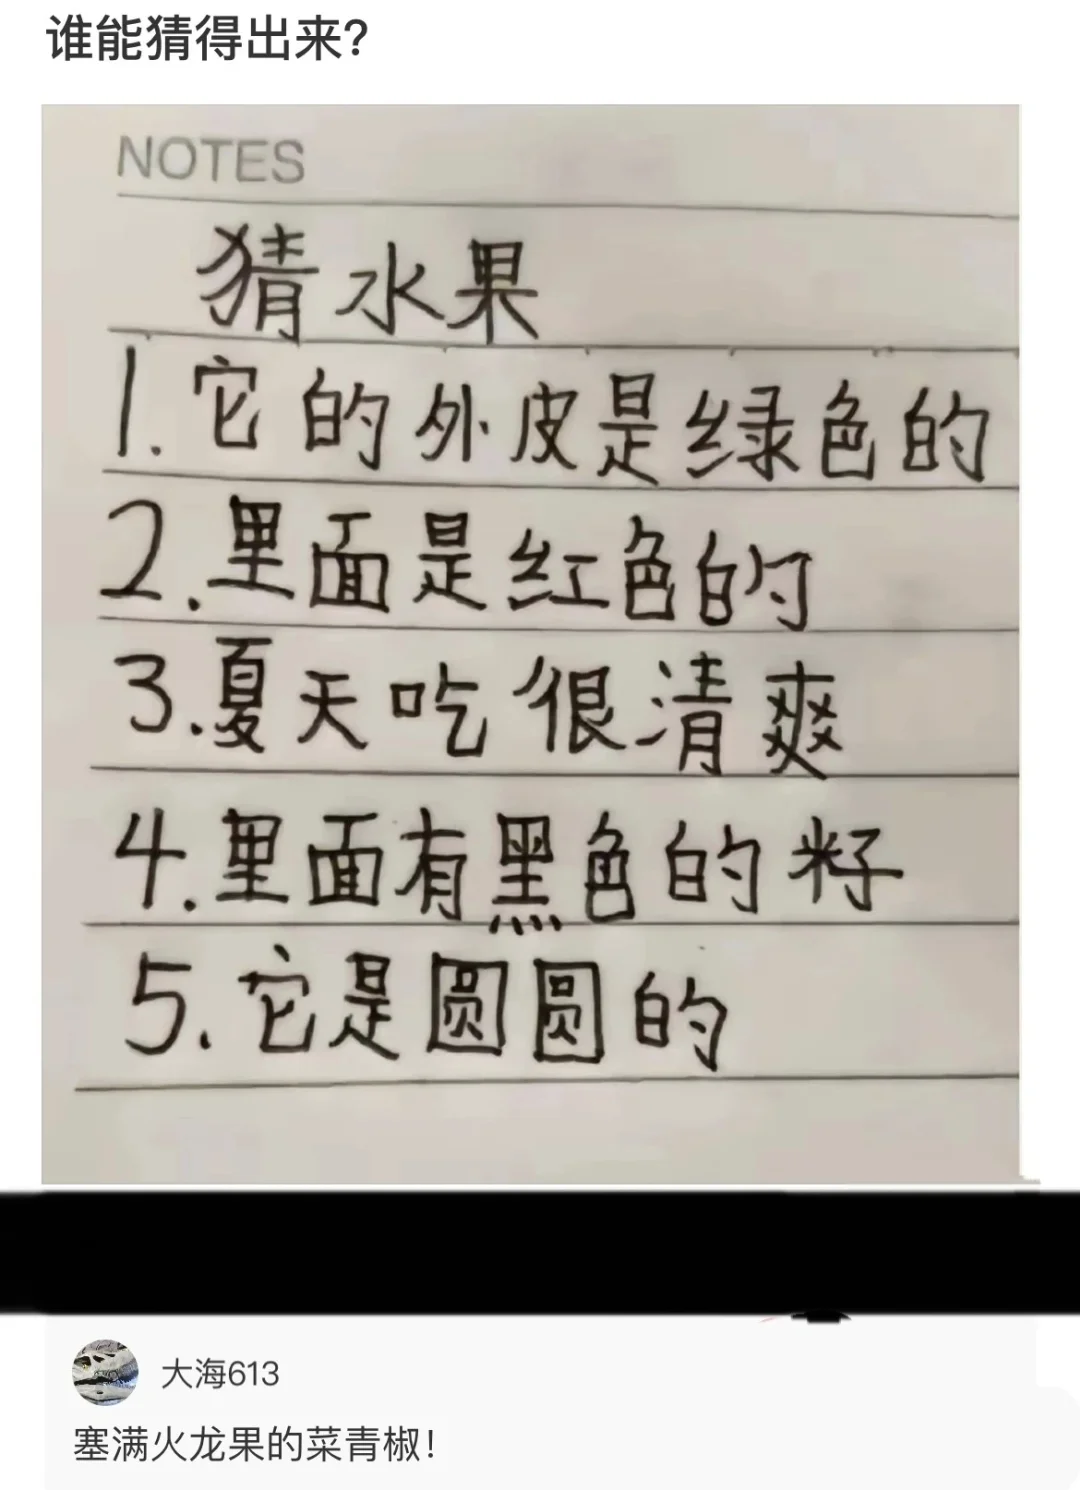 谁能猜得出来?
NOTES
猜水果
1.它的外皮是绿色的
2.里面是红色的
3.夏天吃很清爽
4.里面有黑色的籽
5.它是圆圆的
大海613
塞满火龙果的菜青椒!